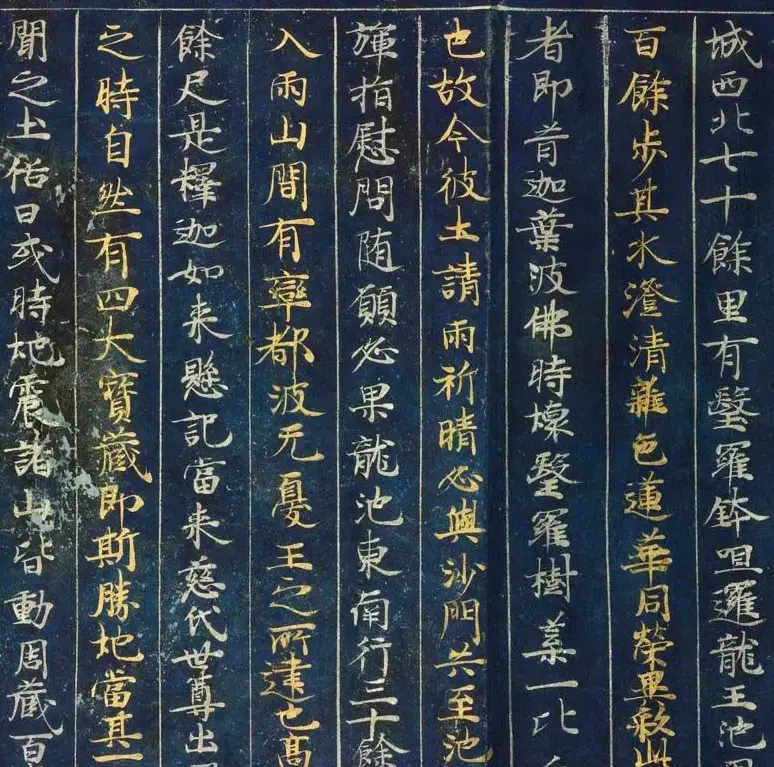 城西北七十餘里有毉羅鉢呾邏龍王池
百餘步其水澄清雜色蓮華同榮異彩此
者即昔迦葉波佛時壞毉羅樹葉一比
也故今彼土請雨祈晴必與沙門共至池
彈指慰問随願必果龍池東南行三十餘
入兩山間有窣都波无憂王之所建也高
餘尺是釋迦如来懸記當来慈氏世尊出
之時自然有四大寶藏即斯勝地當其一
聞之土俗曰或時地震諸山皆動周藏百